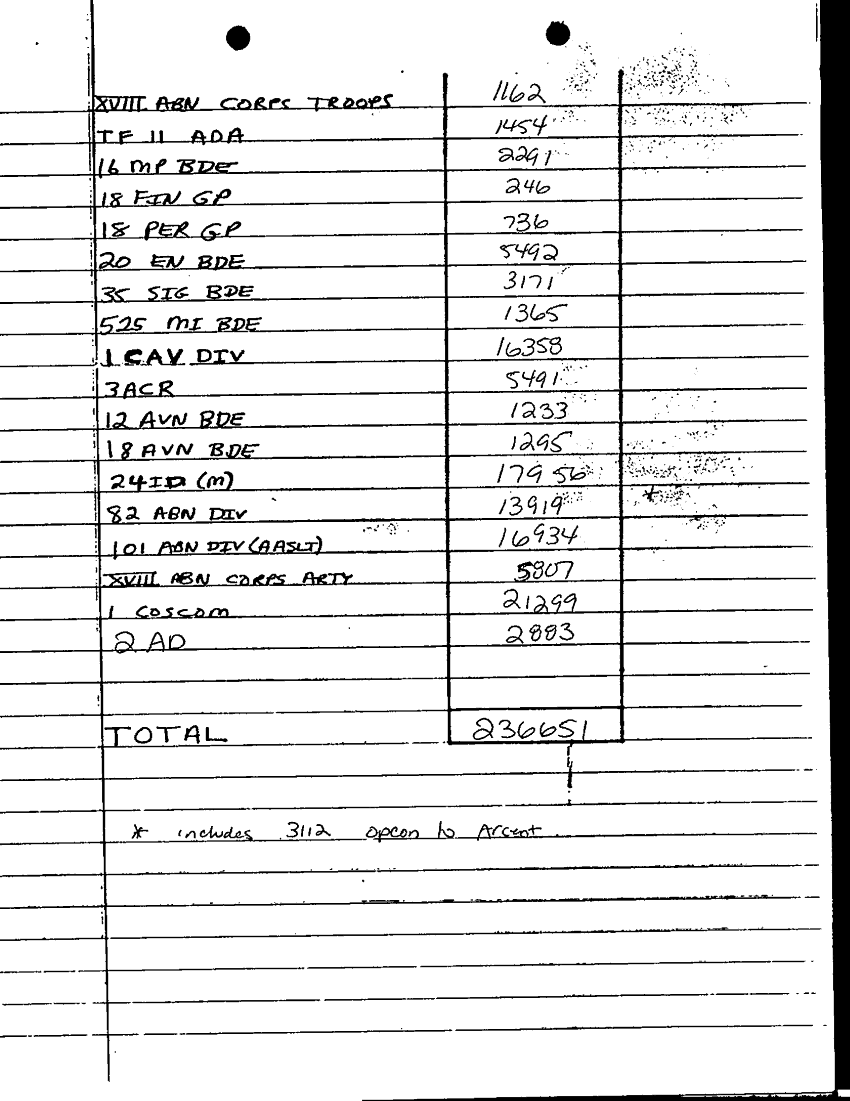 XVIII ABN CORPS TROOPS 1162
TF 11 ADA 1454
16 MP BDE 2291
18 FIN GP 246
18 PER GP 736
20 EN BDE 5492
35 SIG BDE 3171
525 MI BDE 1365
1 CAV DIV 16358
3ACR 5491
12 AVN BDE 1233
18 AVN BDE 1295
24ID (M) 17956
82 ABN DIV 13919 *
101 ABN DIV (AASLT) 16934
XVIII ABN CORPS ARTY 5807
1 COSCOM 21299
2 AD 2883
TOTAL 236651
* includes 3112 opcon to Arcent